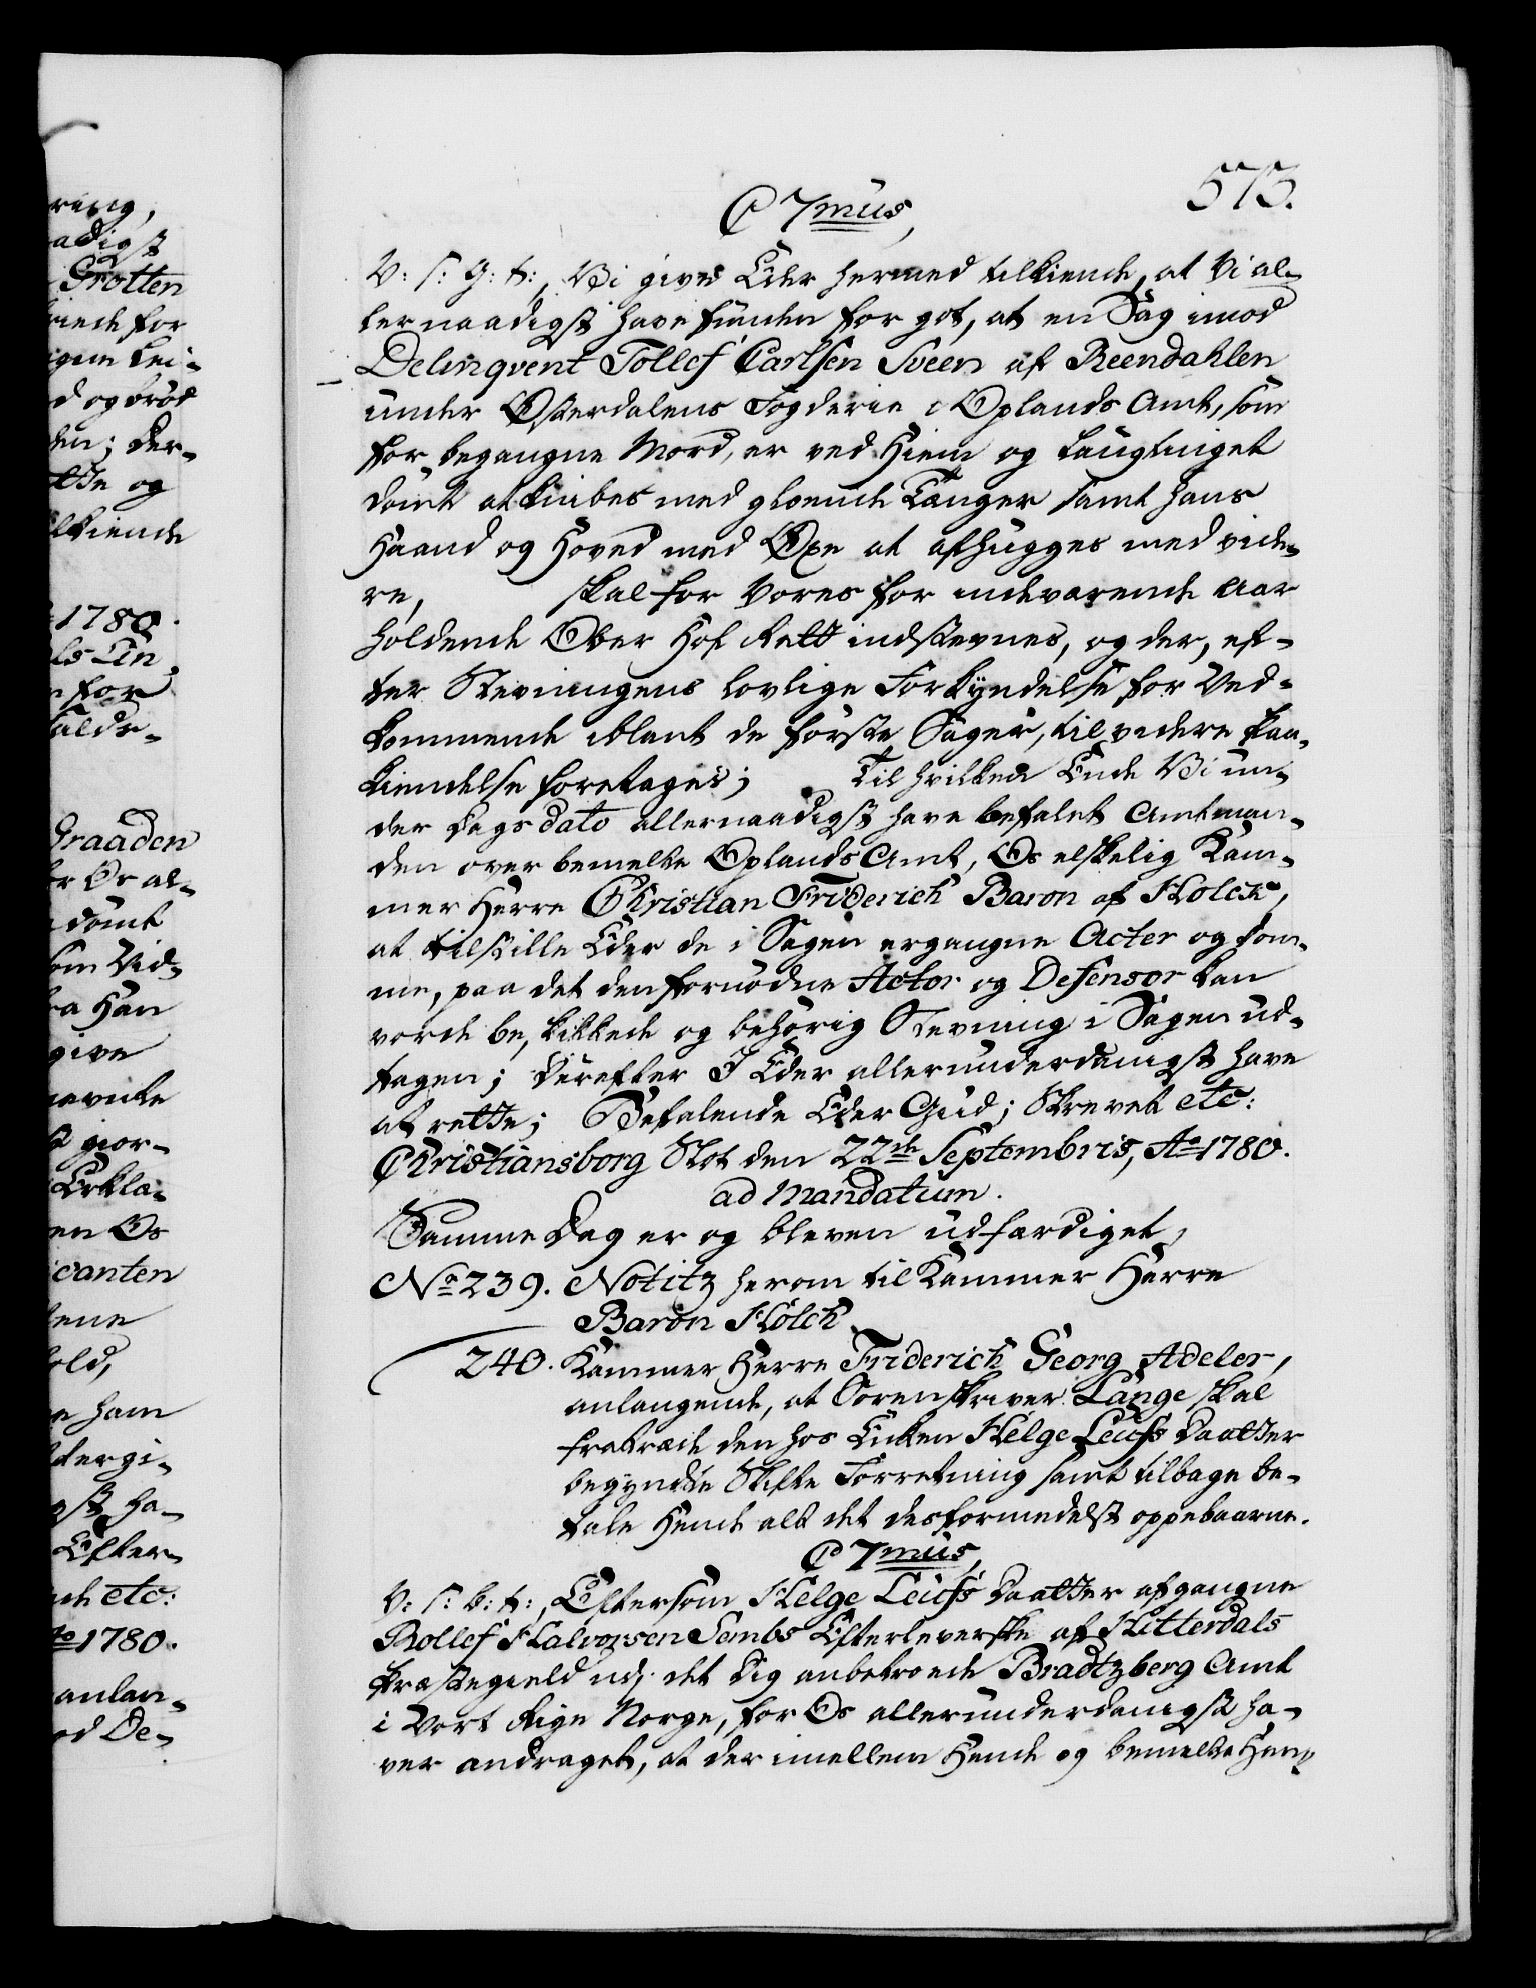 573.
C 7mus,
V: S: G: T:, Vi give Eder hermed tilkiende, at Vi al-
lernaadigst have funden for got, at en Sag imod
Delinqvent Tollef Carlsen Sveen af Reendahlen
under Østerdalens Fogderie i Oplands Amt, som
for begangne Mord, er ved Hiem og Laugtinget
dømt at knibes med gloende Tænger samt hans
Haand og Hoved med Øxe at afhugges med vide-
re, skal for Vores for indeværende Aar
holdende Ober Hof Rett indstevnes, og der, ef-
ter Stevningens lovlige Forkyndelse for Ved-
kommende iblant de første Sager, til videre Paa-
kiendelse foretages; Til hvilken Ende Vi un-
der Dags dato allernaadigst have befalet Amtman-
den over bemelte Oplands Amt, Os elskelig Kam-
mer Herre Christian Friderich Baron af Holck,
at tilstille Eder de i Sagen ergangne Acter og Dom-
me, paa det den fornødne Actor og Defensor kan
vorde beskikkede og behørig Stevning i Sagen ud-
tagen; Derefter I Eder allerunderdanigst have
at rette; Befalende Eder Gud; Skrevet etc:
Christiansborg Slot den 22de Septembris, Ao 1780.
ad Mandatum.
Samme Dag er og bleven udfærdiget,
No 239. Notitz herom til Kammer Herre
Baron Holck
240. Kammer Herre Friderich Georg Adeler,
anlangende, at Sorenskriver Lange skal
fratræde den hos Enken Helge Leufs Daatter
begyndte Skifte Forretning samt tilbage be-
tale Hende alt det desformedelst oppebaarne.
C 7mus,
V: S: B: T:, Eftersom Helge Leufs Daatter afgangne
Rollef Halvorsen Sembs Efterleverske af Hitterdals
Præstegield udj det Dig anbetroede Bradtzberg Amt
i Vort Rige Norge, for Os allerunderdanigst ha-
ver andraget, at der imellem Hende og bemelte Hen-